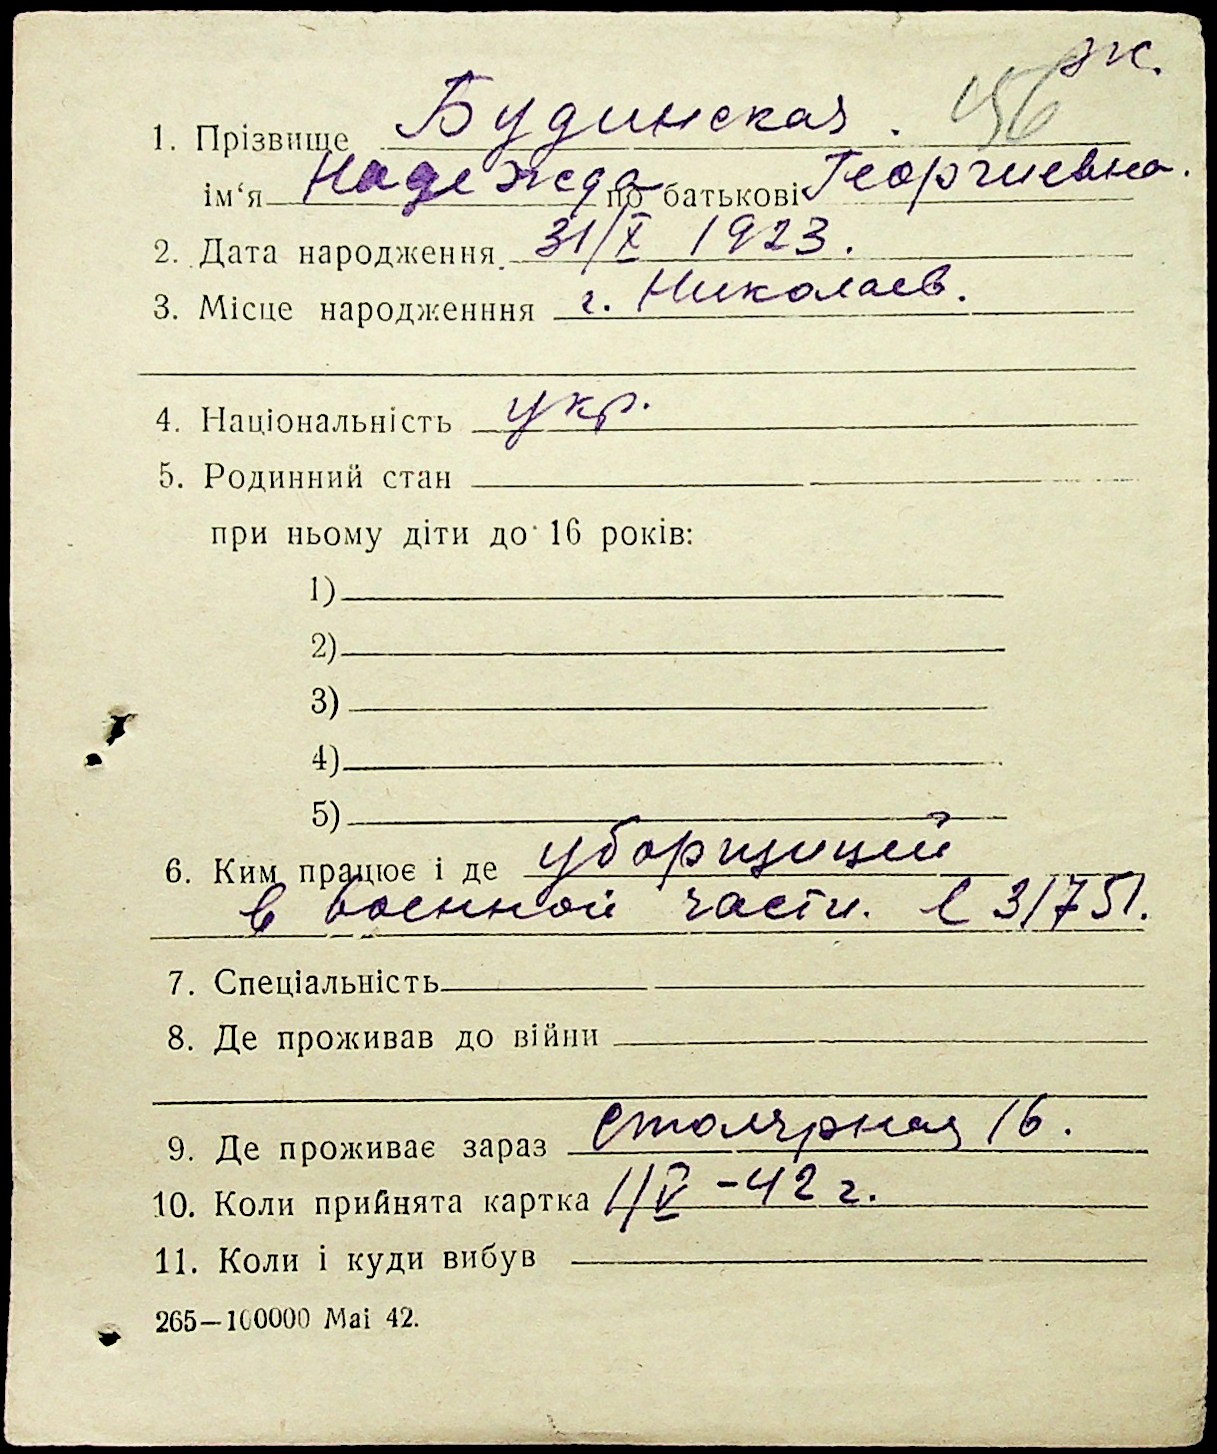 ж.
456
1. Прізвище Будинская.
ім‘я Надежда по батькові Георгиевна.
2. Дата народження 31/X 1923.
3. Місце народженння г. Николаев.
4. Національність укр.
5. Родинний стан
при ньому діти до 16 років:
1)
2)
3)
4)
5)
6. Ким працює і де уборщицей
в военной части. L 31751.
7. Спеціальність
8. Де проживав до війни
9. Де проживає зараз Столярная 16.
10. Коли прийнята картка 1/V-42 г.
11. Коли і куди вибув
265—100000 Маі 42.